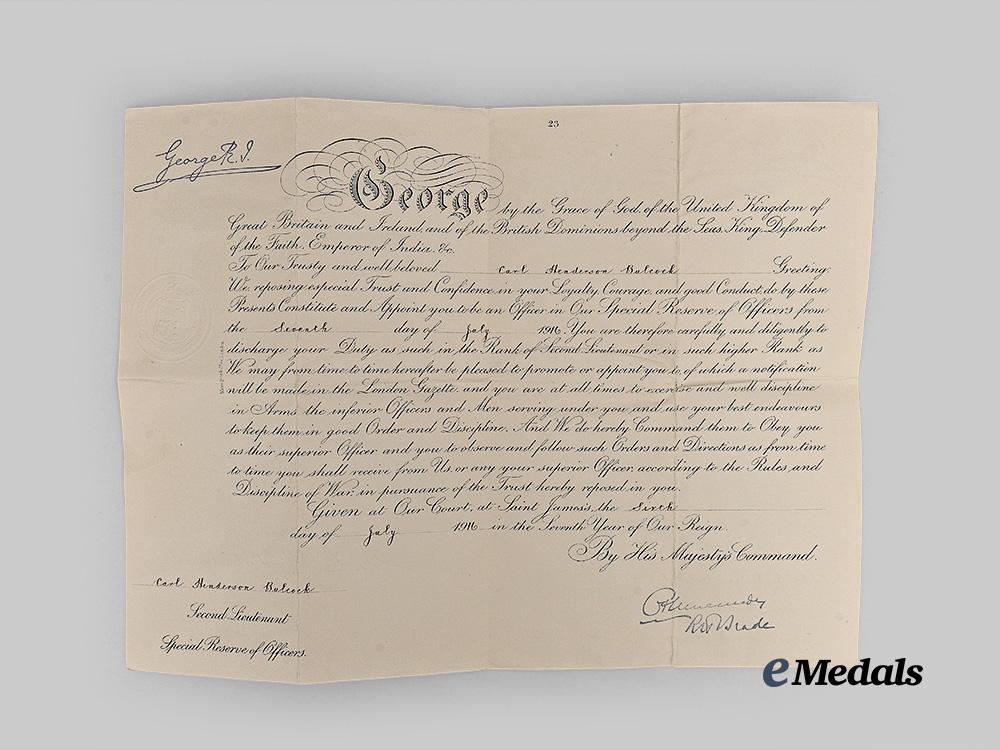 23
George R.I.
George by the Grace of God, of the United Kingdom of
Great Britain and Ireland, and of the British Dominions beyond the Seas, King, Defender
of the Faith, Emperor of India, &c.
To Our Trusty and well beloved Carl Henderson Balcock Greeting:
We, reposing especial Trust and Confidence in your Loyalty, Courage, and good Conduct, do by these
Presents Constitute and Appoint you to be an Officer in Our Special Reserve of Officers from
the Seventh day of July 1916. You are therefore carefully and diligently to
discharge your Duty as such in the Rank of Second Lieutenant or in such higher Rank as
We may from time to time hereafter be pleased to promote or appoint you to, of which a notification
will be made in the London Gazette, and you are at all times to exercise and well discipline
in Arms the inferior Officers and Men serving under you and use your best endeavours
to keep them in good Order and Discipline. And We do hereby Command them to Obey you
as their superior Officer and you to observe and follow such Orders and Directions as from time
to time you shall receive from Us, or any your superior Officer, according to the Rules and
Discipline of War, in pursuance of the Trust hereby reposed in you.
Given at Our Court, at Saint James's, the Sixth
day of July 1916 in the Seventh Year of Our Reign.
By His Majesty's Command.
Carl Henderson Balcock
Second Lieutenant
Special Reserve of Officers.
R H Brade
eMedals